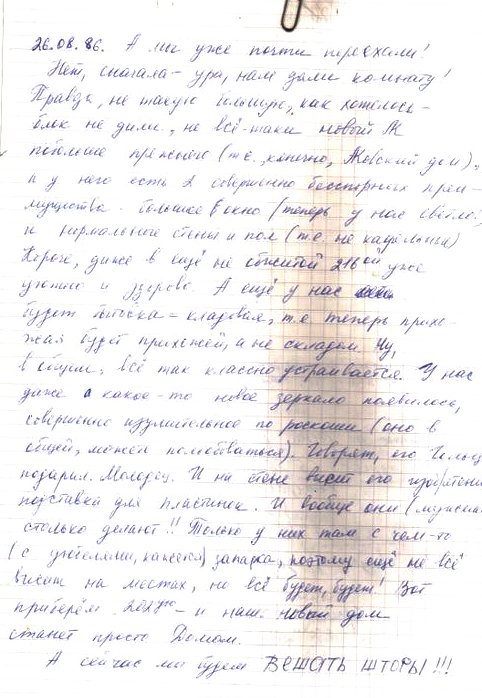 26.08.86. А мы уже почти переехали!
Нет, сначала – ура, нам дали комнату!
Правда, не такую большую, как хотелось –
блок не дали, но всё-таки новый Ж
побольше прежнего (т.е., конечно, Жовский дом),
и у него есть 2 совершенно бесспорных преи-
мущества – большое окно (теперь у нас светло),
и нормальные стены и пол (т.е. не кафельные)
Короче, даже в ещё не обжитой 216ой уже
уютно и здорово. А ещё у нас
будет кладовая, т.е. теперь прихо-
жая будет прихожей, а не складом. Ну,
в общем, всё так классно устраивается. У нас
даже какое-то новое зеркало появилось,
совершенно изумительное по роскоши (оно в
общей, можем полюбоваться). Говорят, его
подарил. Молодец. И на стене висит его изобретение
подставка для пластинок. И вообще они (мужики)
столько делают!! Только у них там с чем-то
(с кажется) запарка, поэтому ещё не всё
висит на местах, но всё будет, будет! Вот
приберём 212ую – и наш новый дом
станет просто Домом.
А сейчас мы будем ВЕШАТЬ ШТОРЫ!!!